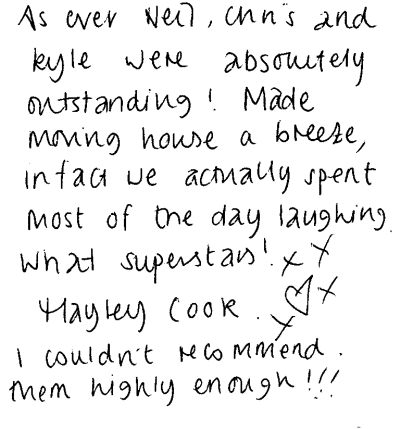 As ever Neil, Chris and
Kyle were absolutely
outstanding! Made
moving house a breeze,
infact we actually spent
most of the day laughing.
What superstars! x x
Hayley Cook. x ♡ x
I couldn't recommend.
them highly enough!!!